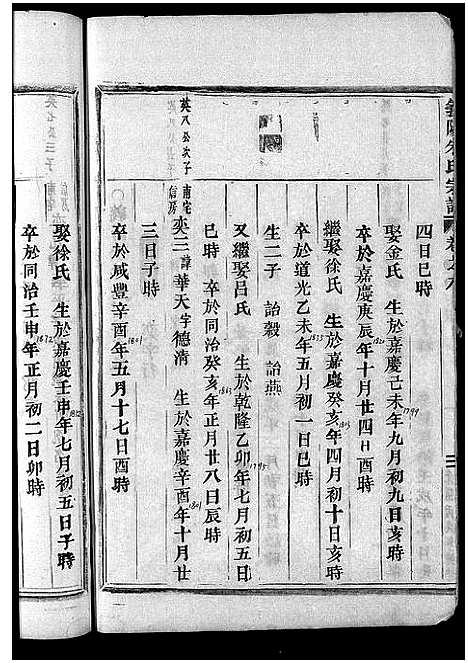 朱氏宗譜 卷之六
四日巳時
娶金氏 生於嘉慶己未年九月初九日亥時 1799
卒於嘉慶庚辰年十月廿四日酉時 1820
繼娶徐氏 生於嘉慶癸亥年四月初十日亥時 1803
卒於道光乙未年五月初一日巳時 1835
生二子 詒穀 詒燕
又繼娶呂氏 生於乾隆乙卯年七月初五日 1795
巳時 卒於同治癸亥年正月廿八日辰時 1863
英八公次子 南宅信房 奕三 諱華天字德清 生於嘉慶辛酉年十月廿 1801
三日子時
卒於咸豐辛酉年五月十七日酉時 1861
娶徐氏 生於嘉慶壬申年七月初五日子時 1812
卒於同治壬申年正月初二日卯時 1872
英七公三子 南宅信房